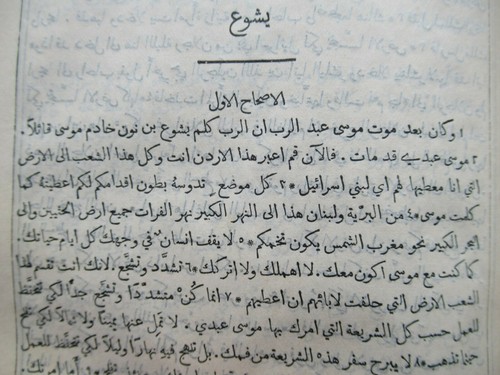 يشوع
الاصحاح الاول
١ وكان بعد موت موسى عبد الرب ان الرب كلم يشوع بن نون خادم موسى قائلاً.
٢ موسى عبدي قد مات. فالآن قم اعبر هذا الاردن انت وكل هذا الشعب الى الارض
التي انا معطيها لهم اي لبني اسرائيل ٣ كل موضع تدوسه بطون اقدامكم لكم اعطيته كما
كلمت موسى ٤ من البرّية ولبنان هذا الى النهر الكبير نهر الفرات جميع ارض الحثيين والى
البحر الكبير نحو مغرب الشمس يكون تخمكم ٥ لا يقف انسان في وجهك كل ايام حياتك.
كما كنت مع موسى اكون معك. لا اهملك ولا اتركك ٦ تشدَّد وتشجَّع. لانك انت تقسم لهذا
الشعب الارض التي حلفت لآبائهم ان اعطيهم ٧ انما كُنْ متشدّدًا وتشجع جدًّا لكي تتحفظ
للعمل حسب كل الشريعة التي امرك بها موسى عبدي. لا تمل عنها يمينًا ولا شمالاً لكي تفلح
حيثما تذهب ٨ لا يبرح سفر هذه الشريعة من فمك. بل تلهج فيهِ نهارًا وليلاً لكي تتحفظ للعمل
٩ أما امرتك.